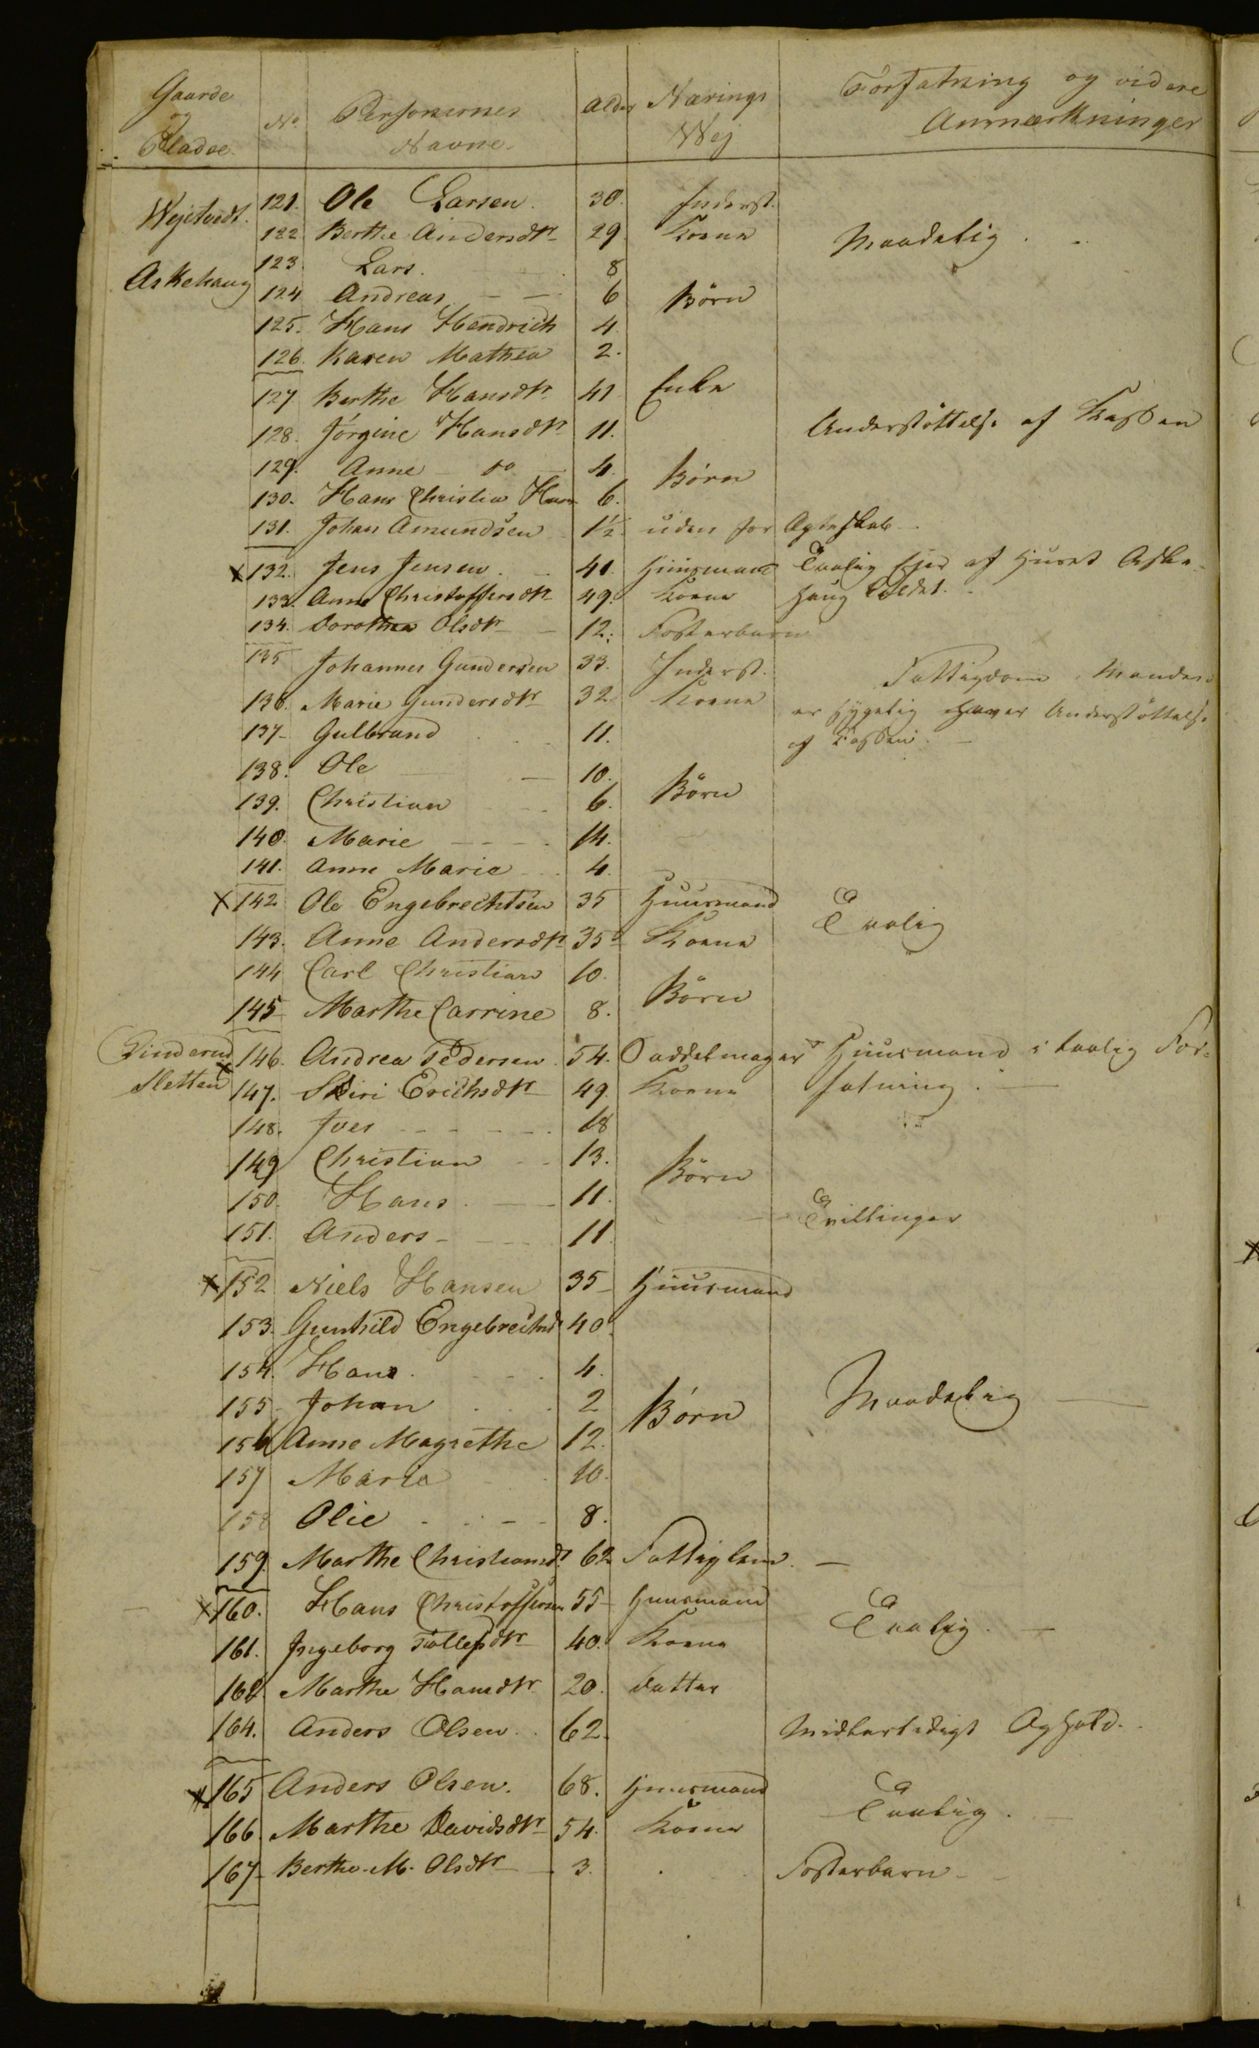 Gaarde og Pladse. No Personernes Navne. Alder Nærings Wej Forfatning og videre Anmærkninger
Wejetvedt. 121. Ole Larsen. 30. Inderst.
122 Berthe Andersdtr 29 Kone Maadelig
Askehaug 123. Lars. 8
124 Andreas 6 Børn
125. Hans Hendrich 4.
126. Karen Mathea 2.
127 Berthe Hansdtr 41 Enke
128. Jørgine Hansdtr 11. Understøttelse af Kassen
129. Anne do 4.
130. Hans Christian 6. Børn
131. Johan Amundsen 1½ uden for Ægteskab
x 132. Jens Jensen. 41. Huusmand Taalig Ejer af Huset Aske-
133. Anne Christoffersdtr 49. Kone haug
134. Dorothea Olsdtr 12. Fosterbarn
135 Johannes Gundersen 33. Inderst. Fattigdom Manden
136. Marie Gundersdtr 32 Kone er sygelig haver Understøttelse
137- Gulbrand 11. af Kassen.
138. Ole 10.
139. Christian 6. Børn
140. Marie 14.
141. Anne Marie 4.
x 142 Ole Engebrechtsen 35 Huusmand Taalig
143. Anne Andersdtr 35 Kone
144 Carl Christian 10.
145 Marthe Carrine 8. Børn
Vinderen x 146. Andrea Pedersen 54. Saddelmager Huusmand i taalig For-
Sletten 147. Siri Erichsdtr 49. Kone fatning.
148. Iver 18
149 Christian 13. Børn
150. Hans 11.
151. Anders 11 Tvillinger
x 152 Niels Hansen 35 Huusmand
153. Gunhild Engebrechtsd 40.
154. Hans 4.
155 Johan 2 Børn Maadelig
156 Anne Magrethe 12.
157 Maria 10.
158 Olie 8.
159. Marthe Christiansd. 62 Fattiglem
x 160. Hans Christoffersen 55 Huusmand Taalig
161. Ingeborg Tollefsdtr 40. Kone
162 Marthe Hansdtr 20. Datter
164. Anders Olsen 62. Midlertidigt Ophold.
x 165 Anders Olsen. 68. Huusmand Taalig.
166. Marthe Davidsdtr 54. Kone
167- Berthe M. Olsdtr 3. Fosterbarn